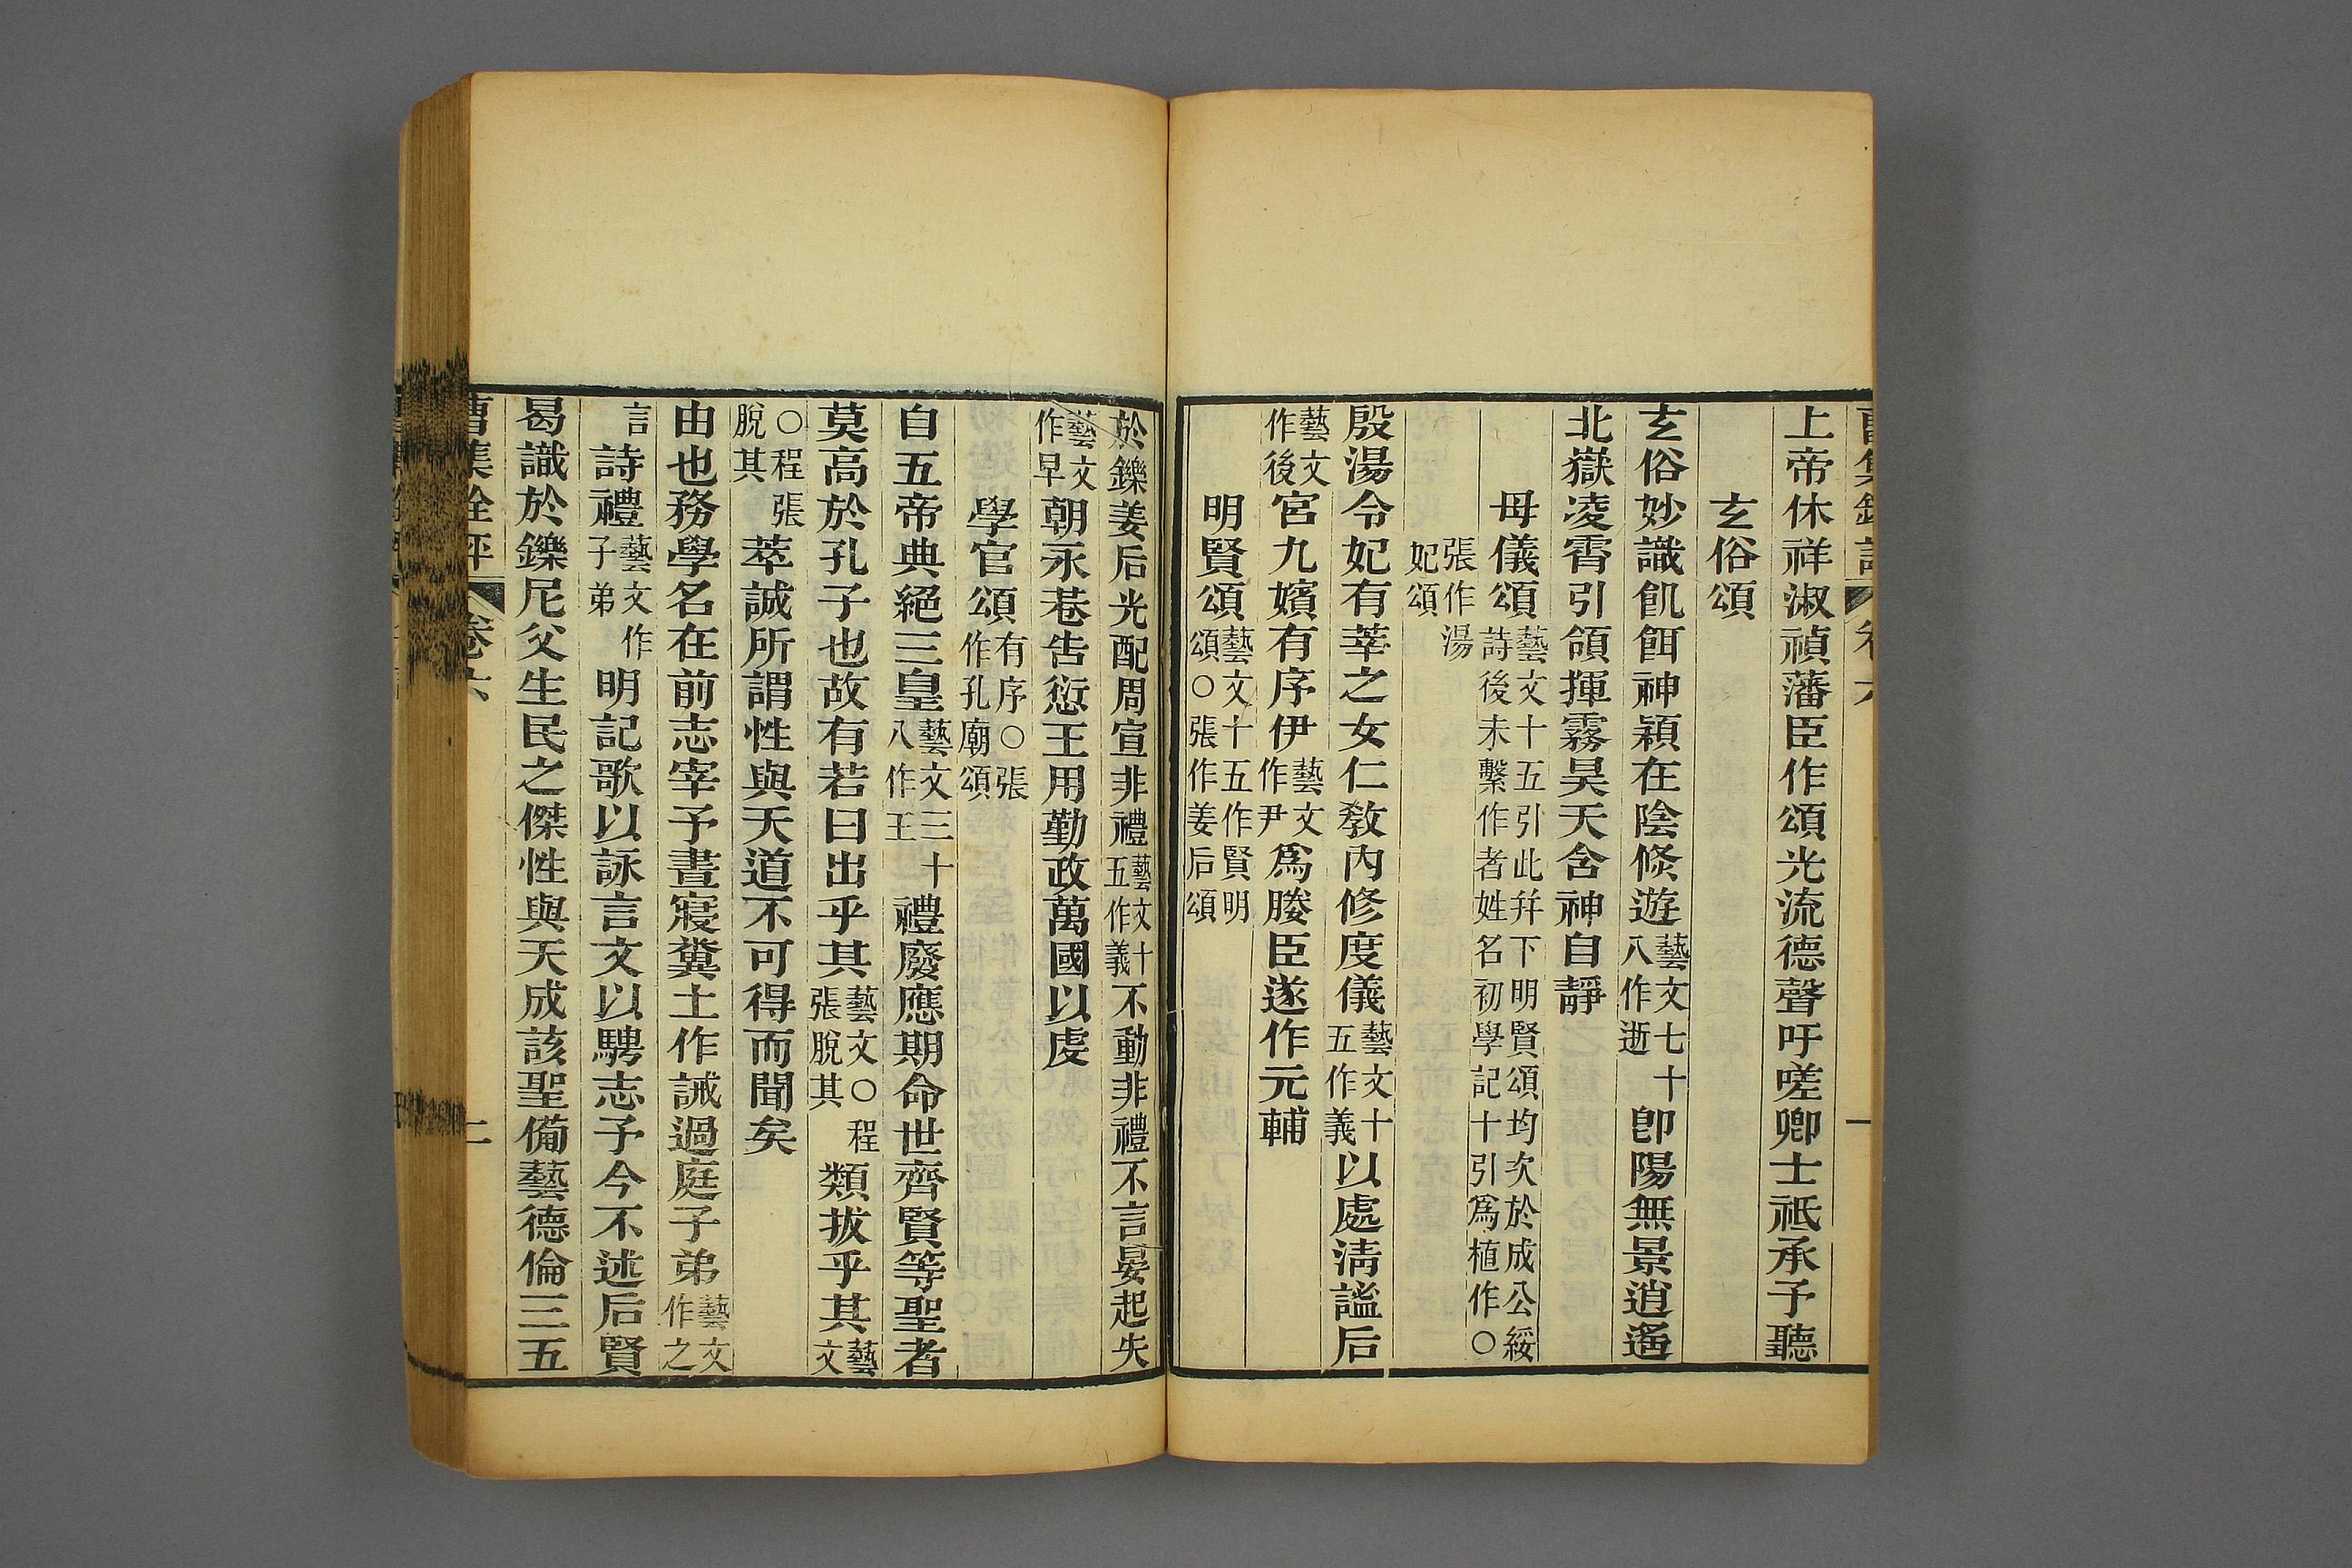 上帝休祥淑禎藩臣作頌光流德聲吁嗟卿士祗承予聽
玄俗頌
玄俗妙識飢餌神穎在陰倏遊藝文七十八作逝卽陽無景逍遙
北嶽凌霄引領揮霧昊天含神自靜
母儀頌藝文十五引此幷下明賢頌均次於成公綏詩後未繫作者姓名初學記十引爲植作○
張作湯妃頌
殷湯令妃有莘之女仁敎內修度儀藝文十五作義以處淸謐后
藝文作後宮九嬪有序伊藝文作尹爲媵臣遂作元輔
明賢頌藝文十五作賢明頌○張作姜后頌
於鑠姜后光配周宣非禮藝文十五作義不動非禮不言晏起失
藝文作早朝永巷告愆王用勤政萬國以虔
學官頌有序○張作孔廟頌
自五帝典絕三皇藝文三十八作王禮廢應期命世齊賢等聖者
莫高於孔子也故有若曰出乎其藝文○程張脫其類拔乎其藝文
○程張脫其萃誠所謂性與天道不可得而聞矣
由也務學名在前志宰予晝寢糞土作誡過庭子弟藝文作之
言詩禮藝文作子弟明記歌以詠言文以騁志予今不述后賢
曷識於鑠尼父生民之傑性與天成該聖備藝德倫三五
曹集銓評 卷六 二